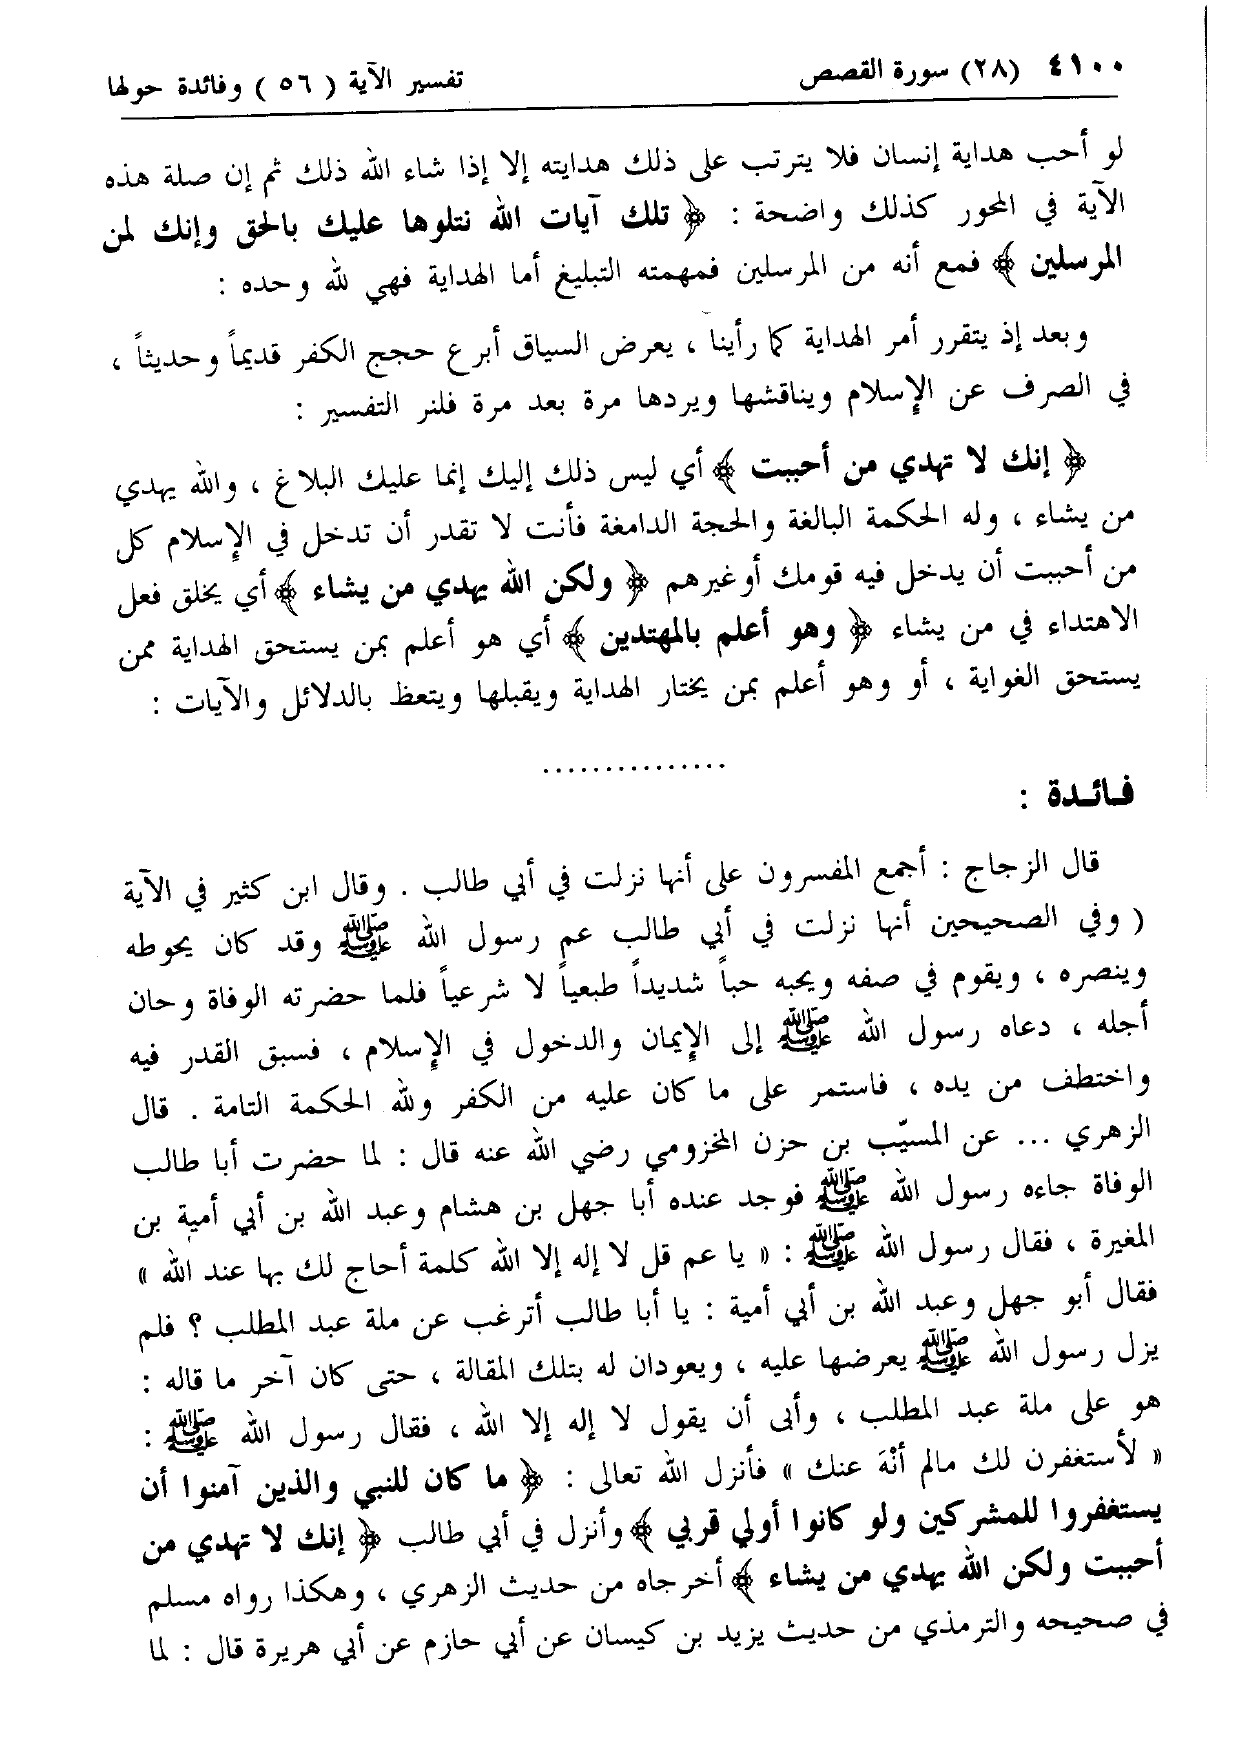 ٤١٠٠ (٢٨) سورة القصص تفسير الآية ( ٥٦ ) وفائدة حولها
لو أحب هداية إنسان فلا يترتب على ذلك هدايته إلا إذا شاء الله ذلك ثم إن صلة هذه
الآية في المحور كذلك واضحة : ﴿ تلك آيات الله نتلوها عليك بالحق وإنك لمن
المرسلين ﴾ فمع أنه من المرسلين فمهمته التبليغ أما الهداية فهي لله وحده :
وبعد إذ يتقرر أمر الهداية كما رأينا ، يعرض السياق أبرع حجج الكفر قديماً وحديثاً ،
في الصرف عن الإسلام ويناقشها ويردها مرة بعد مرة فلنر التفسير :
﴿ إنك لا تهدي من أحببت ﴾ أي ليس ذلك إليك إنما عليك البلاغ ، والله يهدي
من يشاء ، وله الحكمة البالغة والحجة الدامغة فأنت لا تقدر أن تدخل في الإسلام كل
من أحببت أن يدخل فيه قومك أو غيرهم ﴿ ولكن الله يهدي من يشاء ﴾ أي يخلق فعل
الاهتداء في من يشاء ﴿ وهو أعلم بالمهتدين ﴾ أي هو أعلم بمن يستحق الهداية ممن
يستحق الغواية ، أو وهو أعلم بمن يختار الهداية ويقبلها ويتعظ بالدلائل والآيات :
...............
فائدة :
قال الزجاج : أجمع المفسرون على أنها نزلت في أبي طالب . وقال ابن كثير في الآية
( وفي الصحيحين أنها نزلت في أبي طالب عم رسول الله ﷺ وقد كان يحوطه
وينصره ، ويقوم في صفه ويحبه حباً شديداً طبعياً لا شرعياً فلما حضرته الوفاة وحان
أجله ، دعاه رسول الله ﷺ إلى الإيمان والدخول في الإسلام ، فسبق القدر فيه
واختطف من يده ، فاستمر على ما كان عليه من الكفر ولله الحكمة التامة . قال
الزهري ... عن المسيّب بن حزن المخزومي رضي الله عنه قال : لما حضرت أبا طالب
الوفاة جاءه رسول الله ﷺ فوجد عنده أبا جهل بن هشام وعبد الله بن أبي أمية بن
المغيرة ، فقال رسول الله ﷺ : « يا عم قل لا إله إلا الله كلمة أحاج لك بها عند الله »
فقال أبو جهل وعبد الله بن أبي أمية : يا أبا طالب أترغب عن ملة عبد المطلب ؟ فلم
يزل رسول الله ﷺ يعرضها عليه ، ويعودان له بتلك المقالة ، حتى كان آخر ما قاله :
هو على ملة عبد المطلب ، وأبى أن يقول لا إله إلا الله ، فقال رسول الله ﷺ :
« لأستغفرن لك مالم أنْهَ عنك » فأنزل الله تعالى : ﴿ ما كان للنبي والذين آمنوا أن
يستغفروا للمشركين ولو كانوا أولي قربي ﴾ وأنزل في أبي طالب ﴿ إنك لا تهدي من
أحببت ولكن الله يهدي من يشاء ﴾ أخرجاه من حديث الزهري ، وهكذا رواه مسلم
في صحيحه والترمذي من حديث يزيد بن كيسان عن أبي حازم عن أبي هريرة قال : لما